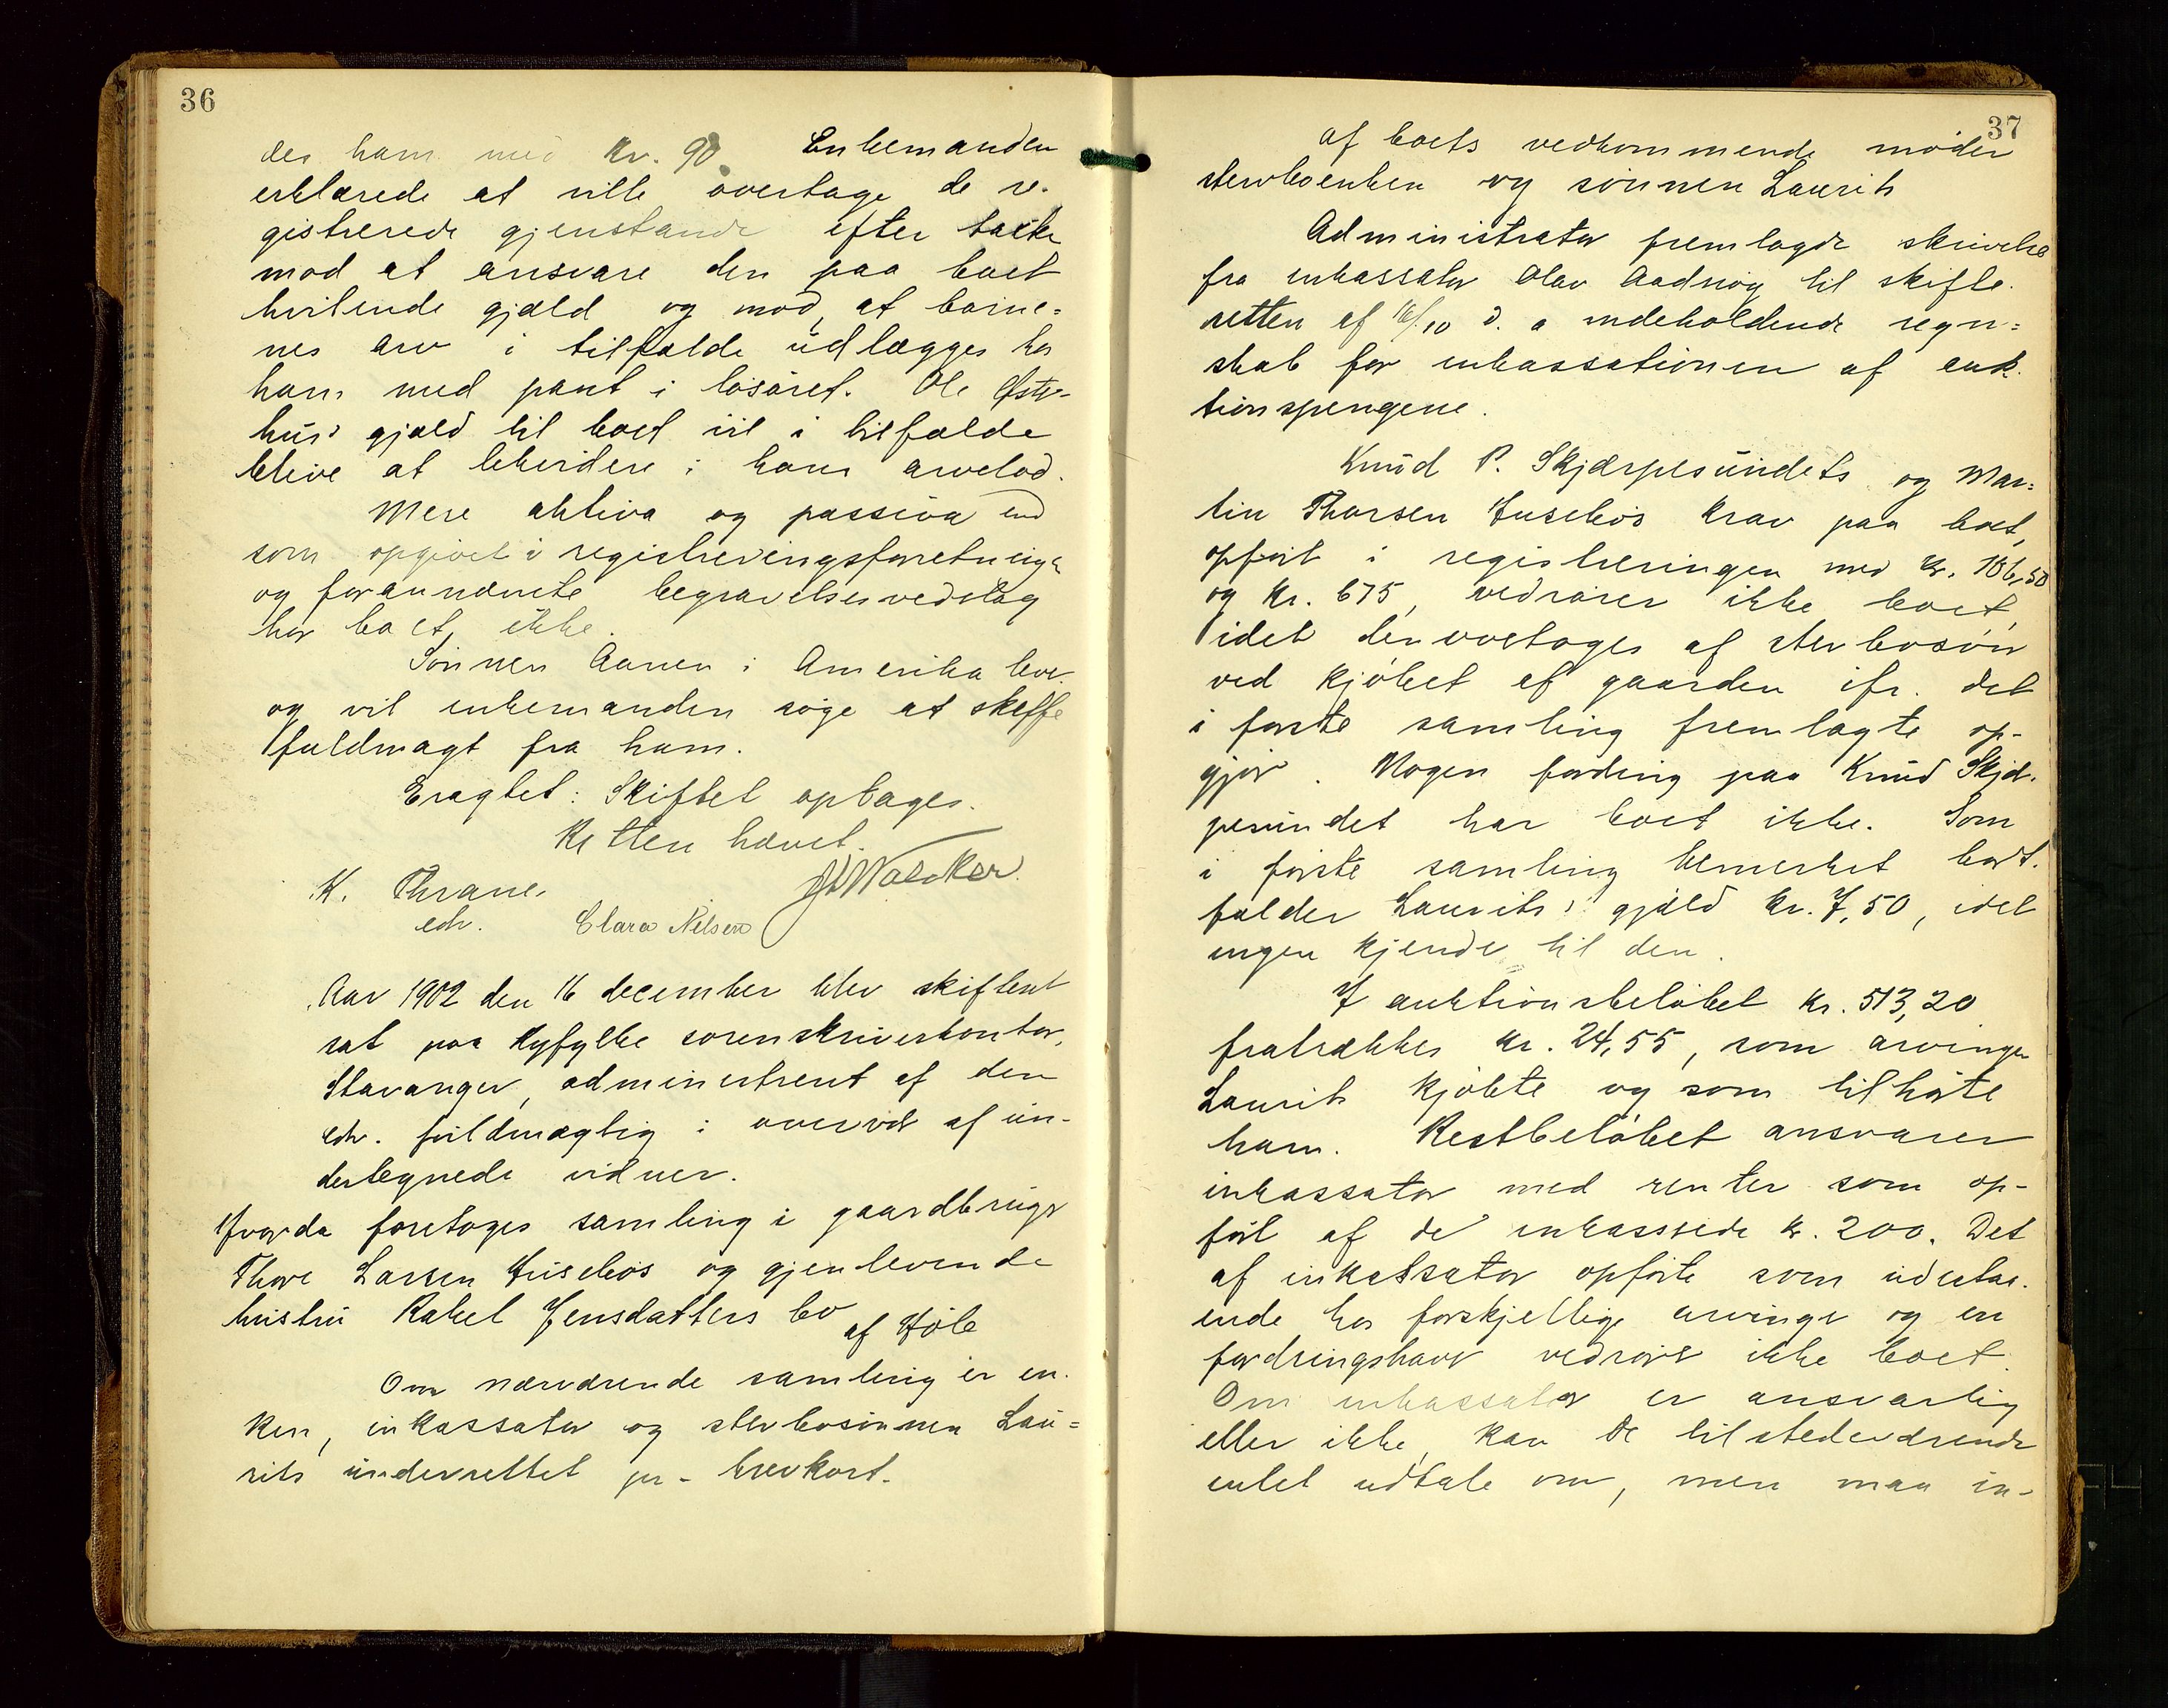 36
des ham med kr. 90. Enkemanden
erklærede at ville overtage de re-
gistrerede gjenstande efter takst
mod at ansvare den paa boet
hvilende gjæld og mod, at børne=
nes arv i tilfælde udlægges hos
ham med pant i løsøret. Ole Øste-
hus's gjæld til boet vil i tilfælde
blive at likvidere i hans arvelod.
Mere aktiva og passiva end
som opgivet i registreringsforretningen
og forannævnte begravelsesvedslag
har boet ikke.
Sønnen Aanen i Amerika lever
og vil enkemanden søge at skaffe
fuldmagt fra ham.
Eragtet: Skiftet optages.
Retten hævet.
K. Thrane
edv. Clara Nilsen
Aar 1902 den 16 december blev skifteret
sat paa Ryfylke sorenskriverkontor,
Stavanger, administreret af den
edv. fuldmægtig i overvær af un-
dertegnede vidner.
Hvorda foretoges samling i gaardbruger
Thore Larsen Husebøs og gjenlevende
hustru Rakel Jensdatters bo af Høle
Om nærværende samling er en-
ken, inkassator og stervbosønnen Lau=
rits underrettet pr. brevkort.
37
Af boets vedkommende møder
stervboenken og sønnen Laurits
Administrator fremlagde skrivelse
fra inkassator Olav Aadnøy til skifte-
retten af 16/10 d. a indeholdende regn=
skab for inkassationen af auk-
tionspengene.
Knud P. Skjærpesundets og Mar=
tin Thorsen Husebøs krav paa boet,
opført i registreringen med kr. 106,50
og kr. 675, vedrører ikke boet,
idet den overtoges af stervbosøn
ved kjøbet af gaarden cfr. det
i første samling fremlagte op-
gjør. Nogen fordring paa Knud Skjær-
pesundet har boet ikke. Som
i første samling bemerket bort-
falder Laurits's gjæld kr. 7,50, idet
ingen kjender til den.
I auktionsbeløbet kr. 513,20
fratrækkes kr. 24,55, som arvingen
Laurits kjøbte og som tilhørte
ham. Restbeløbet ansvarer
inkassator med renter som op-
ført af de inkasserede kr. 200. Det
af inkassator opførte som udestaa-
ende hos forskjellige arvinger og en
fordringshaver vedrører ikke boet.
Om inkassator er ansvarlig
eller ikke, kan de tilstedeværende
intet udtale om, men maa in-